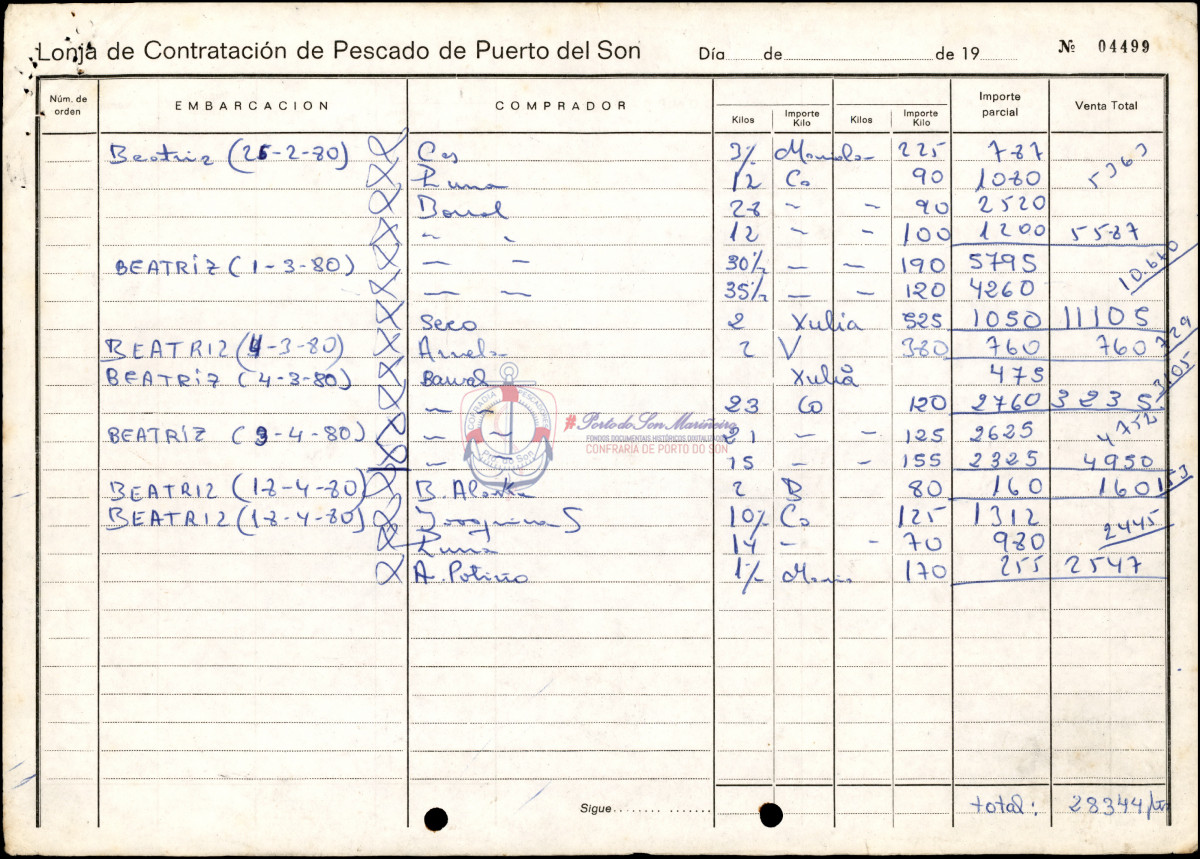 Lonja de Contratación de Pescado de Puerto del Son Día de de 19 Nº 04499
Núm. de orden EMBARCACION COMPRADOR Kilos Importe Kilo Kilos Importe Kilo Importe parcial Venta Total
Beatriz (25-2-80) Ces 3½ 225 787 5363
Luna 12 Co 90 1080
28 - - 90 2520
- - 12 - - 100 1200 5587
BEATRIZ (1-3-80) - - 30½ - - 190 5795
- - 35½ - - 120 4260 10.660
Seco 2 Xulia 525 1050 11105
BEATRIZ (4-3-80) 2 V 380 760 760 729
BEATRIZ (4-3-80) Xulia 475
- - 23 Co 120 2760 3235 3105
BEATRIZ (9-4-80) - - 21 - - 125 2625 4752
- - 15 - - 155 2325 4950
BEATRIZ (18-4-80) B. 2 B 80 160 160 153
BEATRIZ (18-4-80) Joaquina S 10½ Co 125 1312
Luna 14 - - 70 980 2445
A. Potiño 1½ 170 255 2547
COFRADIA PESCADORES
Porto do Son
#Porto do Son Mariñeiro
FONDOS DOCUMENTAIS HISTÓRICOS DIGITALIZADOS
CONFRARÍA DE PORTO DO SON
Sigue total: 28344